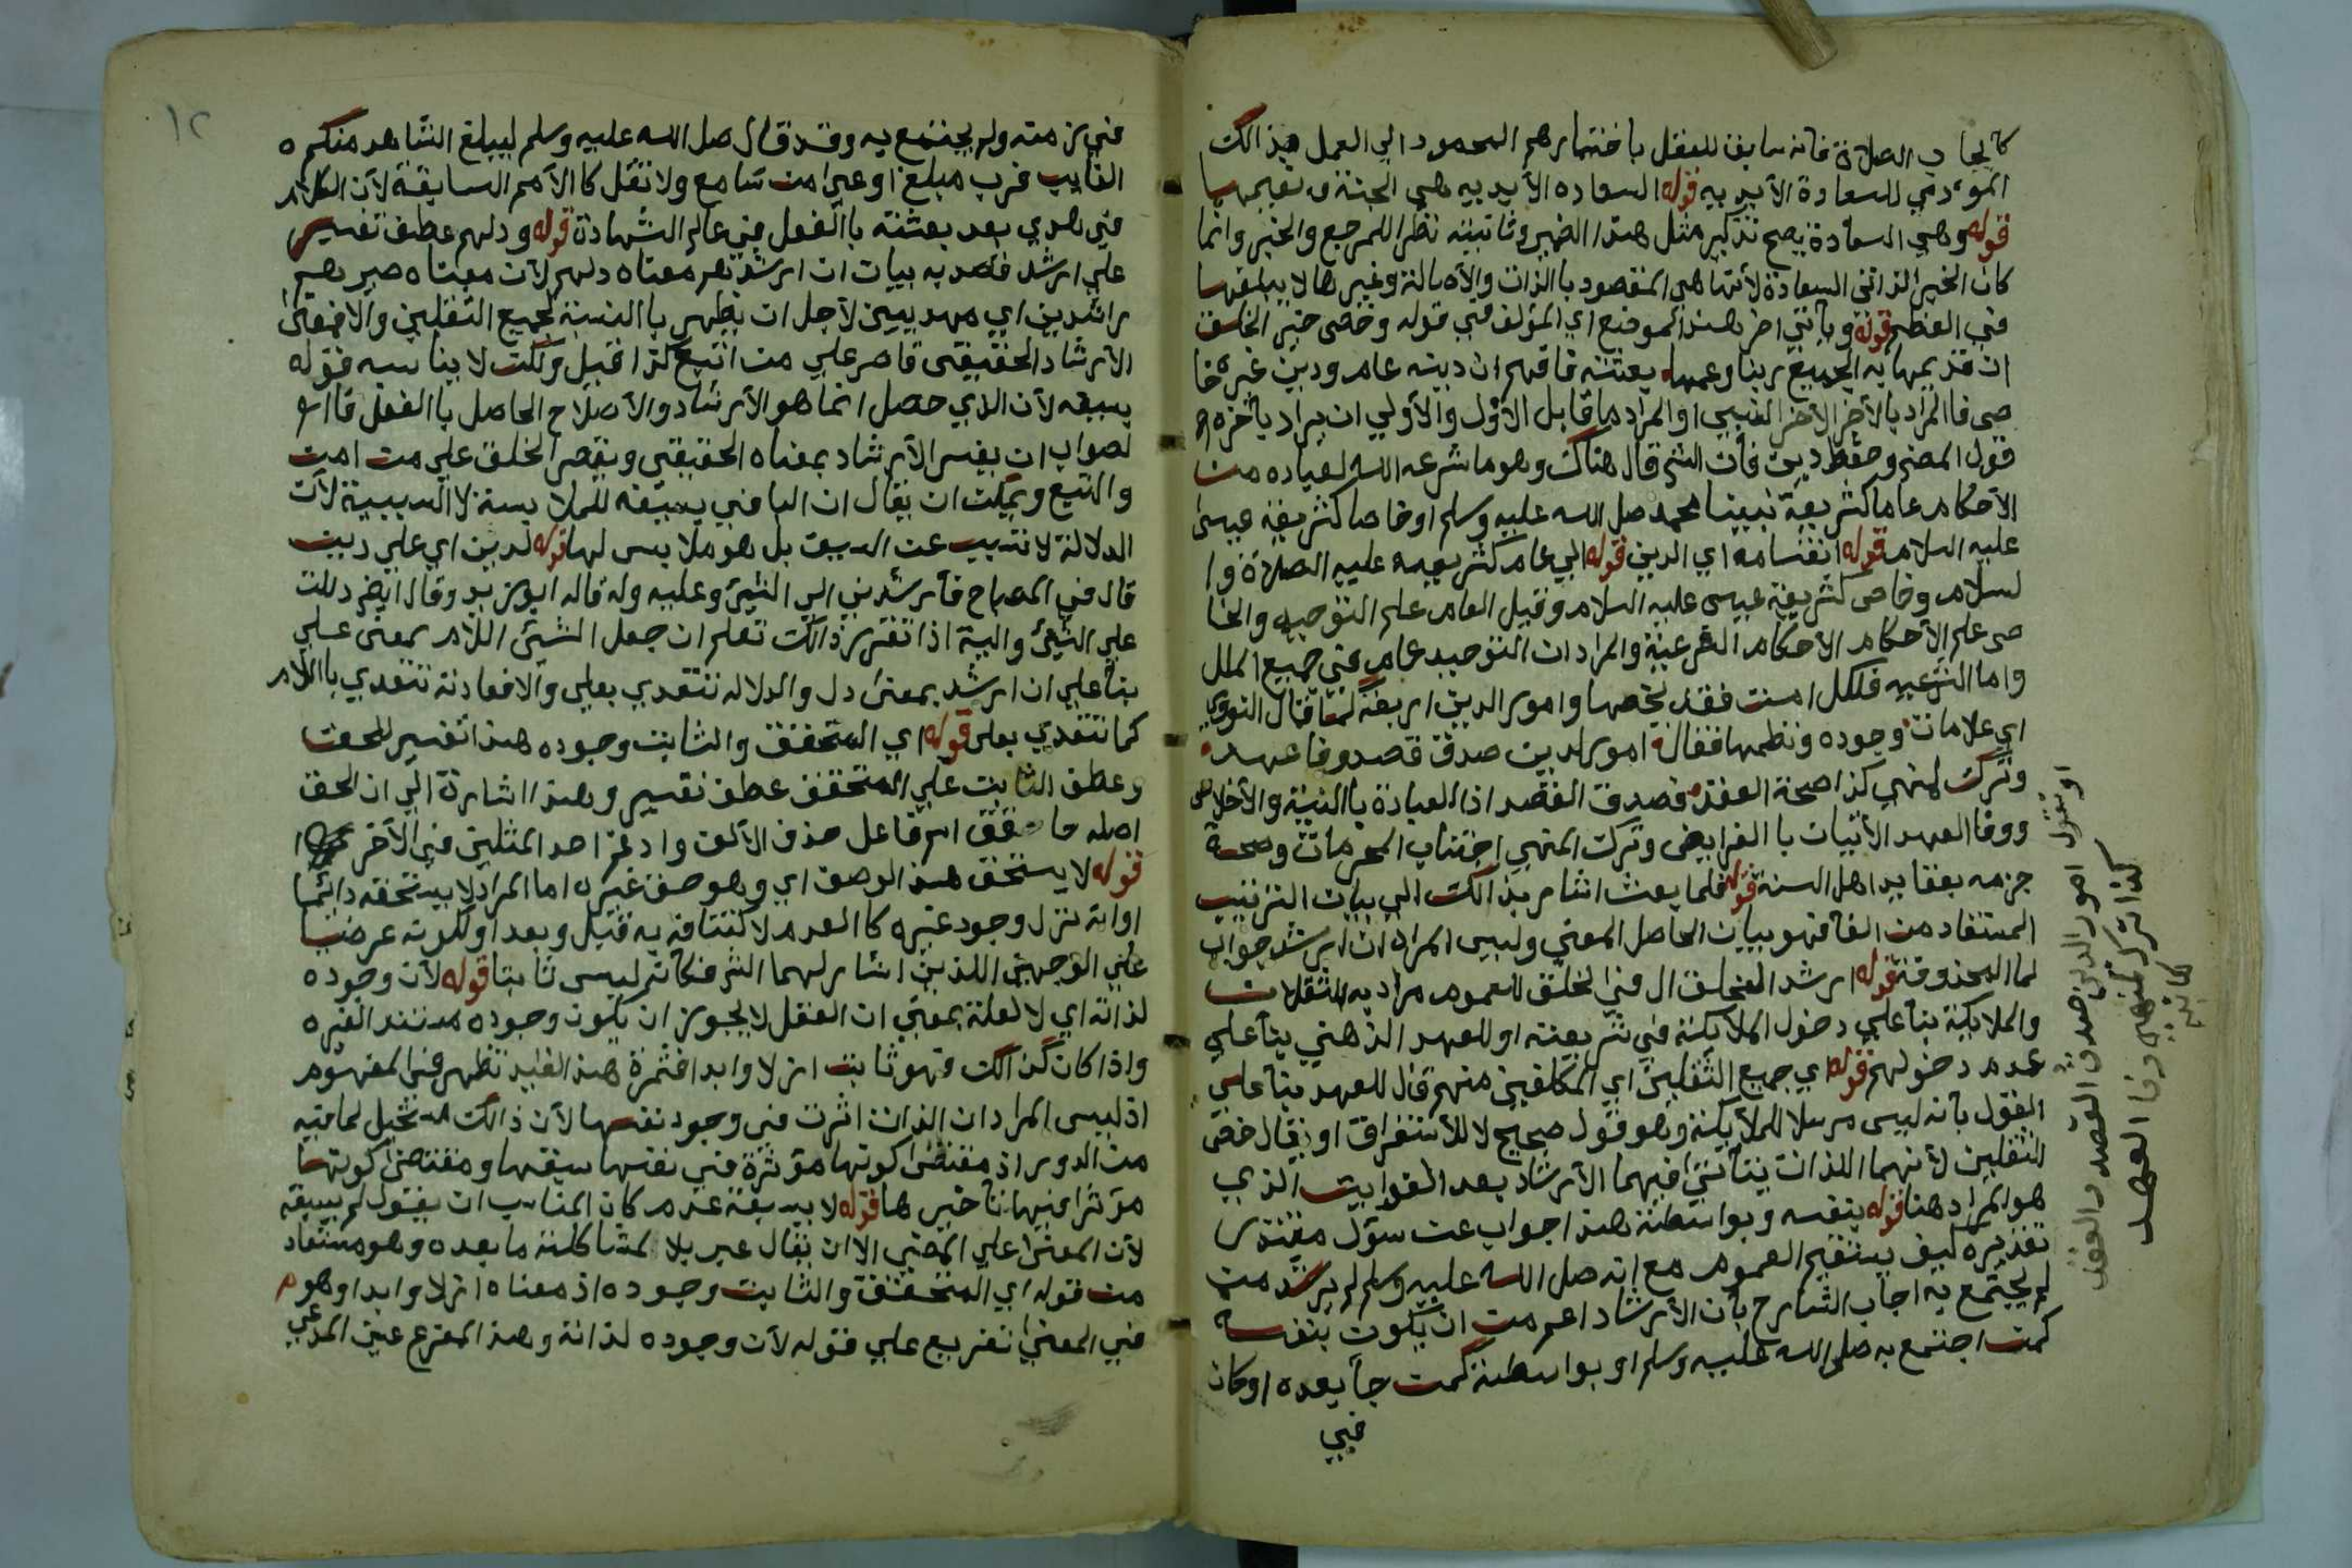 كايجاب الصلاة فانه سايق للعقل باختيارهم المحمود الي العمل بذالك
الموءدي للسعادة الأبديه قوله السعاده الأبديه هي الجنة ونعيمها
قوله وهي السعادة يصح تذكير مثل هذا الضمير وتانيثه نظرا للمرجع والخبر وانما
كان الخير الذاتي السعادة لأنها هي المقصود بالذات والأصالة وغيرها لا
في العظم قوله وياتي اخر هذا الموضع اي المؤلف في قوله وخص خير الخلق
ان قد تمما به الجميع ربنا وعمما بعثته فافهم ان دينه عام ودين غيره خا
ص فالمراد بالأخر الأخر النسبي او المراد ما قابل الأول والأولي ان يراد بأخره
قول المصنف وحفظ دين فأن الشم قال هناك وهو ما شرعه الله لعباده من
الأحكام عاما كشريعة نبينا محمد صل الله عليه وسلم او خاصا كشريعة عيسى
عليه السلام قوله انقسامه اي الدين قوله الي عام كشريعته عليه الصلاة وا
لسلام وخاص كشريعة عيسى عليه السلام وقيل العام علم التوحيد والخا
ص علم الأحكام الأحكام الفرعية والمراد ان التوحيد عام في جميع الملل
واما الشرعيه فلكل امت فقه يخصها وامور الدين اربعة كما قال النووي
اي علامات وجوده ونظمها فقال امور لدين صدق قصد وفا عهد
وترك لمنهي كذا صحة العقد فصدق القصد اذا العبادة بالنية والأخلاص
ووفا العهد الأتيان بالفرايض وترك المنهي اجتناب المحرمات وصحة
جزمه بعقايد اهل السنة قوله فلما بعث اشار بذالك الي بيان الترتيب
المستفاد من الفا فهو بيان الحاصل المعني وليس المراد ان ارشد جواب
لما المحذوفة قوله ارشد الخلق ال في الخلق للعموم مراد به الثقلان
والملايكة بنأ علي دخول الملايكة في شريعته او للعهد الذهني بنأ علي
عدم دخولهم قوله اي جميع الثقلين اي المكلفين منهم فال للعهد بنأ علي
القول بأنه ليس مرسلا للملأيكة وهو قول صحيح لا للأستغراق او يقال خص
الثقلين لأنهما اللذان يتأتى فيهما الأرشاد بعد الغوايت الذي
هو المراد هنا قوله بنفسه وبواسطة هذا جواب عن سؤل مقدر
تقديره كيف يستقيم العموم مع انه صل الله عليه وسلم لم يرشد من
لم يجتمع به اجاب الشارح بأن الأرشاد اعم من ان يكون بنفسه
كمن اجتمع به صلى الله عليه وسلم او بواسطة كمن جأ بعده او كان
في
او تقول امور الدين صدق القصد والعقد
كذا ترك لمنهي وفا العهد
١٢
في زمنه ولم يجتمع به وقد قال صل الله عليه وسلم ليبلغ الشاهد منكم
الغايب فرب مبلغ اوعي من سامع ولا نقل كا الأمم السابقة لأن الكلام
في هدي بعد بعثته باالفعل في عالم الشهادة قوله ودلهم عطف تفسير
علي ارشد قصد به بيان ان ارشدهم معناه دلهم لأن معناه صيرهم
راشدين اي مهديين لأجل ان يظهر باالنسبة لجميع الثقلين والا فمعنى
الأرشاد الحقيقى قاصر علي من اتبع كذا قيل ولكن لا يناسبه قوله
بسيفه لأن الذي حصل انما هو الأرشاد والأصلاح الحاصل باالفعل فاا
لصواب ان يفسر الأرشاد بمعناه الحقيقي ويقصر الخلق علي من امن
واتبع ويمكن ان يقال ان البا في بسيفه للملابسة لا السببية لأن
الدلالة لا تتسبب عن السيف بل هو ملابس لها قوله لدين اي علي دين
قال في المصباح فأرشدني الي الشيئ وعليه وله قاله ابو زيد وقال ايض دللت
علي الشيئ واليه اذا تقرر ذالك تعلم ان جعل الشيئ اللام بمعنى علي
بنأ علي ان ارشد بمعنى دل والدلاله تتعدي بعلي والا فمادته تتعدي باللام
كما تتعدي بعلى قوله اي المتحقق والثابت وجوده هذا تفسير للحق
وعطف الثابت علي المتحقق عطف تفسير وهذا اشارة الي ان الحق
اصله حاقق اسم فاعل حذف الألف وادغم احد المثلين في الأخر
قوله لا يستحق هذا الوصف اي وهو صف غيره اما المراد لا يستحقه دائما
او انه نزل وجود غيره كا العدم لاكتنافه به قبل وبعد او لكونه عرضيا
علي الوجهين اللذين اشار لهما الشر فكأنه ليس ثابتا قوله لأن وجوده
لذاته اي لا لعلة بمعني ان العقل لا يجوز ان يكون وجوده مستند الغيره
واذا كان كذالك فهو ثابت ازلا وابدا فثمرة هذا القيد تظهر في المفهوم
اذ ليس المراد ان الذات اثرت في وجود نفسها لأن ذالك مستحيل لما فيه
من الدور اذ مقتضى كونها مؤثرة في نفسها سبقها ومقتضى كونها
مؤثرا فيها تأخيرها قوله لا يسبقه عدم كان المناسب ان يقول لم يسبقه
لأن المعنى علي المضي الا ان يقال عبر بلا لمشاكلة ما بعده وهو مستفاد
من قوله اي المتحقق والثابت وجوده اذ معناه ازلا وابدا وهو
في المعني تفريع علي قوله لأن وجوده لذاته وهذا المفرع عين المدعي